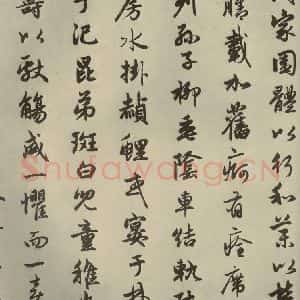 家園體以行和藥以勞
膳載加舊痾有痊席
列孫子柳垂陰車結軌
房水掛赬鯉或宴于林
于汜昆弟斑白兒童稚
壽以獻觴咸一懼而一喜
Shufawang.CN